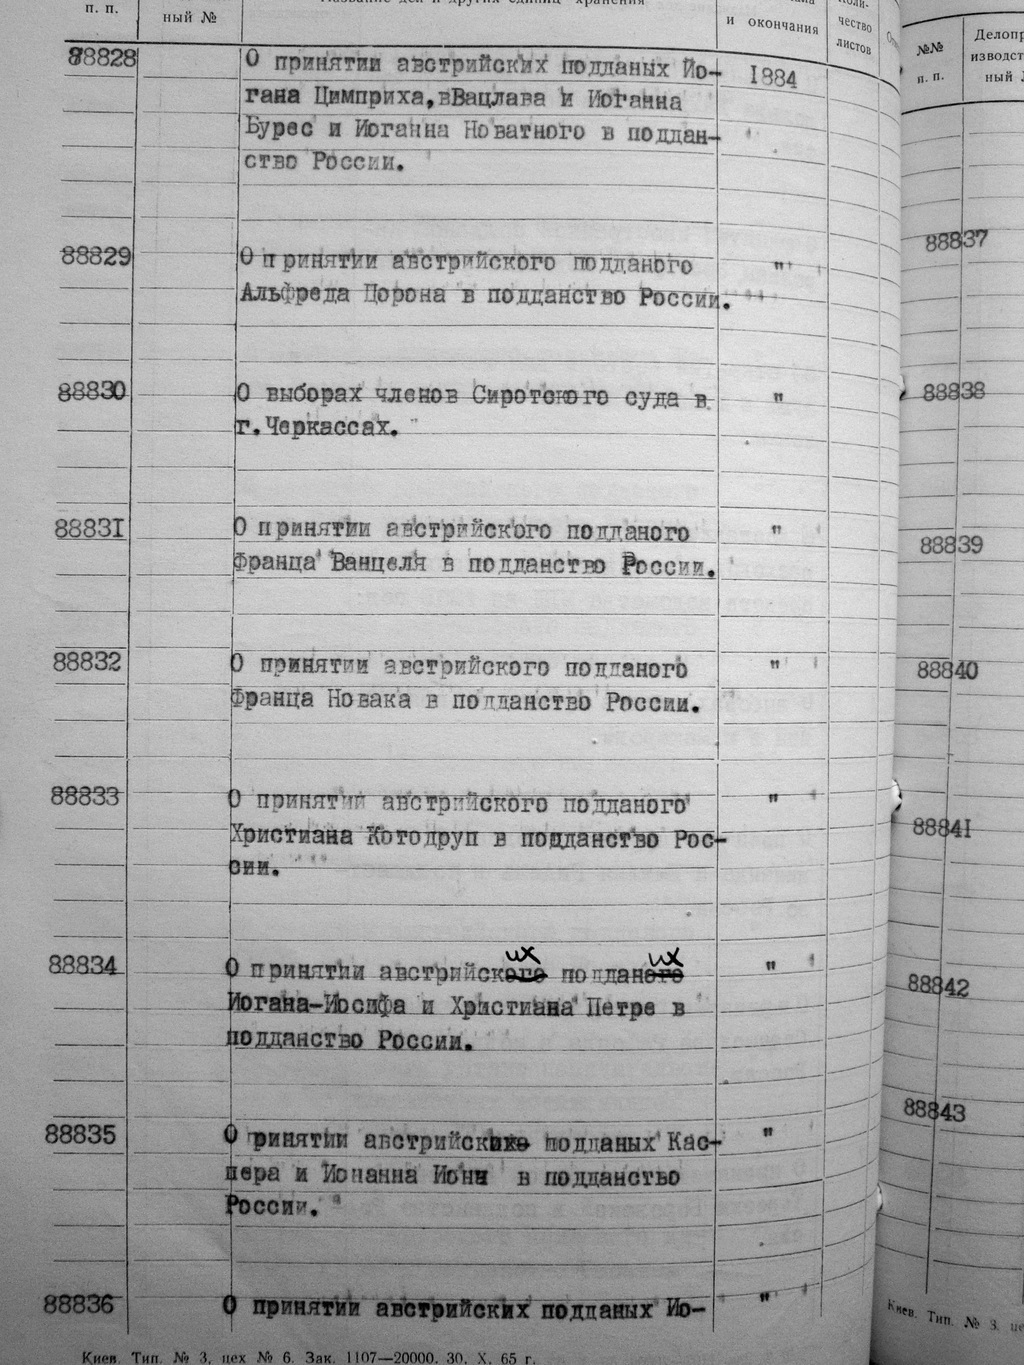 п. п.
ный №
Название дел и других единиц хранения
и окончания
чество
листов
88828 О принятии австрийских подданых Йо- 1884
гана Цимприха,вВацлава и Иоганна
Бурес и Иоганна Новатного в поддан-
ство России.
88829 О принятии австрийского подданого "
Альфреда Дорона в подданство России.
88830 О выборах членов Сиротского суда в "
г.Черкассах.
88831 О принятии австрийского подданого "
Франца Ванцеля в подданство России.
88832 О принятии австрийского подданого "
Франца Новака в подданство России.
88833 О принятии австрийского подданого "
Христиана Котодруп в подданство Рос-
сии.
их их
88834 О принятии австрийского подданого "
Иогана-Иосифа и Христиана Петре в
подданство России.
88835 О принятии австрийских подданых Кас- "
пера и Иоанна Иони в подданство
России.
88836 О принятии австрийских подданых Ио- "
Киев. Тип. № 3, цех № 6. Зак. 1107—20000. 30. X. 65 г.
№№
п. п.
Делопр
изводст
ный
88837
88838
88839
88840
88841
88842
88843
Киев. Тип. № 3, це